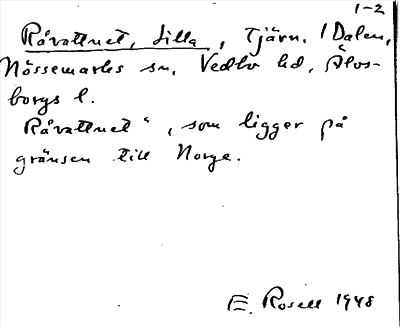 1-2
Råvattnet, Lilla, Tjärn. I Dalen,
Nössemarks sn, Vedbo hd, Älvs-
borgs l.
Råvattnet", som ligger på
gränsen till Norge.
E. Rosell 1948